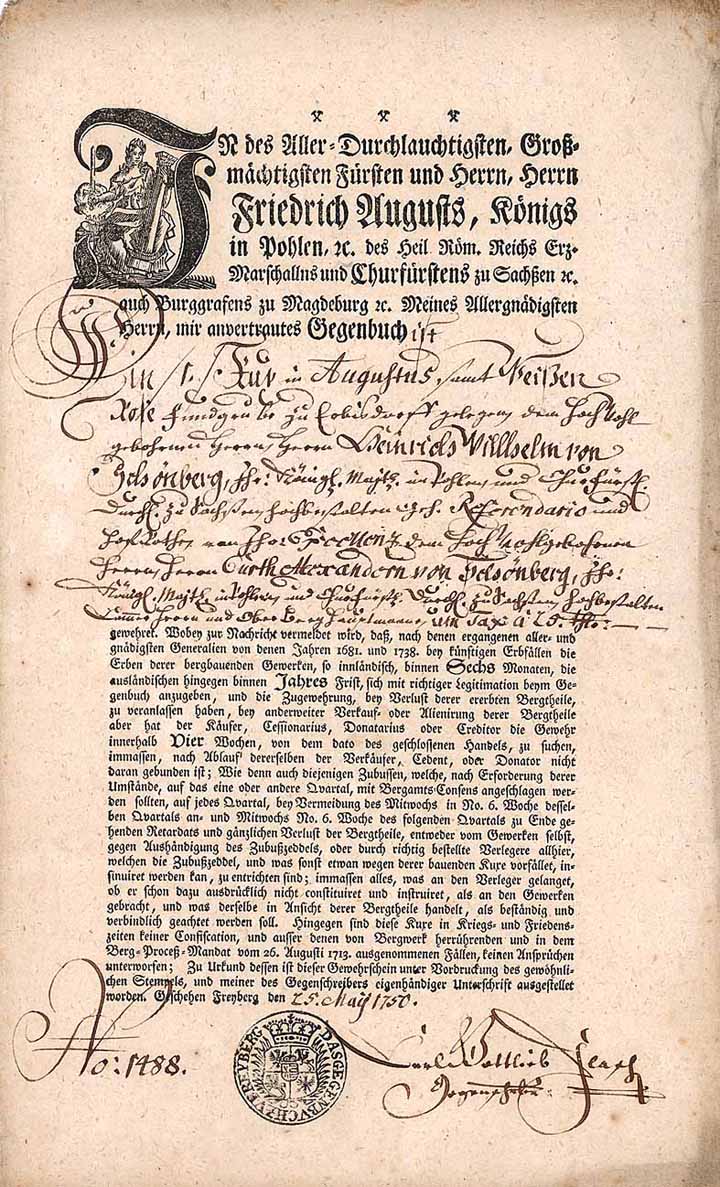 IN des Aller-Durchlauchtigsten, Groß-
mächtigsten Fürsten und Herrn, Herrn
Friedrich Augusts, Königs
in Pohlen, ꝛc. des Heil. Röm. Reichs Erz-
Marschallns und Churfürstens zu Sachßen ꝛc.
auch Burggrafens zu Magdeburg ꝛc. Meines Allergnädigsten
Herrn, mir anvertrautes Gegenbuch ist
Ein /:1:/ Kux in Augustus samt Weißen
Rose Fundgrube zu Erbisdorff gelegen dem HochWohl
gebohrnen Herrn, Herrn Heinrich Willhelm von
Schönberg, Ihr: Königl. Majtt. in Pohlen und Churfürstl.
Durchl. zu Sachßen hochbestalten Geh. Referendario und
Hof Rathe, von dem HochWohlgebohrnen
Herrn, Herrn Curth Alexandern von Schönberg, Ihr:
Königl. Majtt. in Pohlen und Churfürstl. Durchl. zu Sachßen hochbestalten
Cammer Herrn und Ober Berg Hauptmann, um Tax à 25. thlr:
gewehret. Wobey zur Nachricht vermeldet wird, daß, nach denen ergangenen aller- und
gnädigsten Generalien von denen Jahren 1681. und 1738. bey künftigen Erbfällen die
Erben derer bergbauenden Gewerken, so innländisch, binnen Sechs Monaten, die
ausländischen hingegen binnen Jahres Frist, sich mit richtiger Legitimation beym Ge-
genbuch anzugeben, und die Zugewehrung, bey Verlust derer ererbten Bergtheile,
zu veranlassen haben, bey anderweiter Verkauf- oder Alienirung derer Bergtheile
aber hat der Käufer, Cessionarius, Donatarius oder Creditor die Gewehr
innerhalb Vier Wochen, von dem dato des geschlossenen Handels, zu suchen,
immassen, nach Ablauf dererselben der Verkäufer, Cedent, oder Donator nicht
daran gebunden ist; Wie denn auch diejenigen Zubussen, welche, nach Erforderung derer
Umstände, auf das eine oder andere Qvartal, mit Bergamts-Consens angeschlagen wer-
den sollten, auf jedes Qvartal, bey Vermeidung des Mitwochs in No. 6. Woche dessel-
ben Qvartals an- und Mitwochs No. 6. Woche des folgenden Qvartals zu Ende ge-
henden Retardats und gänzlichen Verlust der Bergtheile, entweder vom Gewerken selbst,
gegen Aushändigung des Zubußzeddels, oder durch richtig bestellte Verlegere allhier,
welchen die Zubußzeddel, und was sonst etwan wegen derer bauenden Kuxe vorfället, in-
sinuiret werden kan, zu entrichten sind; immassen alles, was an den Verleger gelanget,
ob er schon dazu ausdrücklich nicht constituiret und instruiret, als an den Gewerken
gebracht, und was derselbe in Ansicht derer Bergtheile handelt, als beständig und
verbindlich geachtet werden soll. Hingegen sind diese Kuxe in Kriegs- und Friedens-
zeiten keiner Confiscation, und ausser denen von Bergwerk herrührenden und in dem
Berg-Proceß-Mandat vom 26. Augusti 1713. ausgenommenen Fällen, keinen Ansprüchen
unterworfen; Zu Urkund dessen ist dieser Gewehrschein unter Vordruckung des gewöhnli-
chen Stempels, und meiner des Gegenschreibers eigenhändiger Unterschrift ausgestellet
worden. Geschehen Freyberg den 25. May 1750.
No: 1488.
DAS GEGENBVCH ZV FREYBERG
Carl Gottlieb
Gegenschrbr.